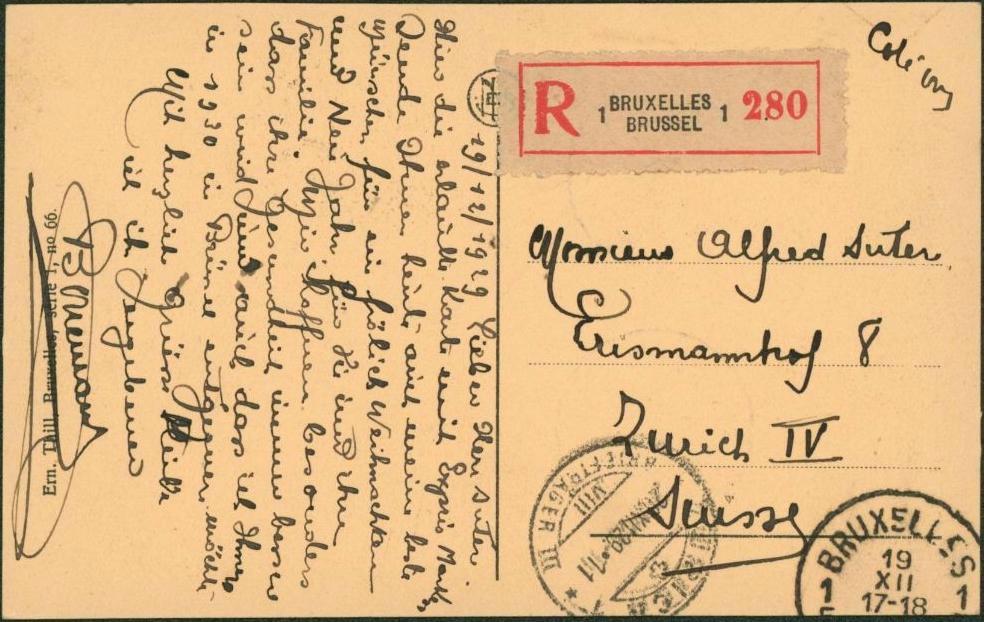 19/12/1929 Lieber Herr Suter.
Hier die erlaubte Karte mit Express Marke,
Sende Ihnen heute auch meine beste
Wünsche für ein frölich Weihnachten
und Neu Jahr, für Sie und ihre
Familie. Wir hoffen besonders
dass ihre Gesundheit immer besser
sein wird und auch dass ich Ihnen
in 1930 in Brüssel entgegnen möcht-
Mit herzlich Grüss bleibe
ich ergebener
Ern. Thill, Bruxelles, série 1, no 66.
R 1 BRUXELLES 1 280
BRUSSEL
Monsieur Alfred Suter
Erismannhof 8
Zurich IV
Suisse
ZÜRICH
BRIEFTRÄGER III
VIII
BRUXELLES
1 19 1
XII
17-18